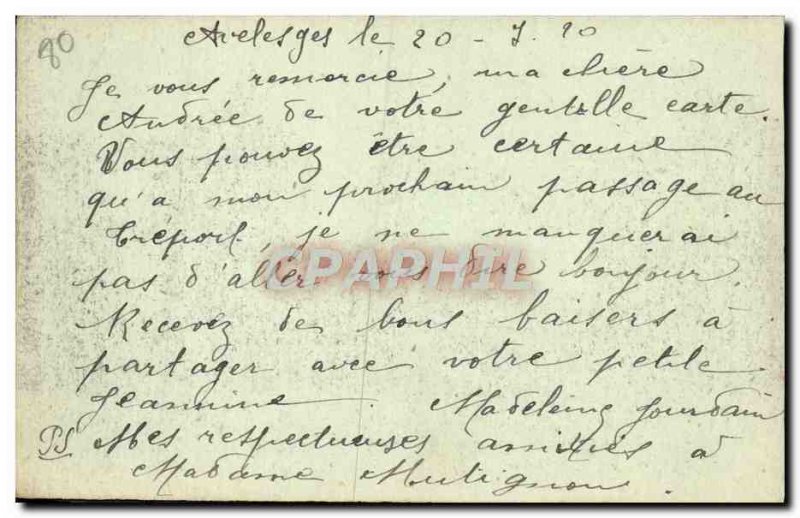 80
Avelesges le 20 - 7. 20
Je vous remercie, ma chère
Andrée de votre gentille carte.
Vous pouvez être certaine
qu'a mon prochain passage au
Tréport, je ne manquerai
pas d'aller vous dire bonjour.
Recevez de bons baisers à
partager avec votre petite
Jeannine. Madeleine Jourdain
PS Mes respectueuses amitiés à
Madame Mutignon.
CPAPHIL